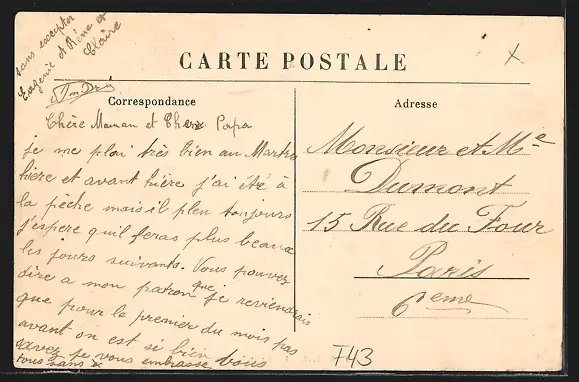 sans excepter
Eugenie et Réne et
Claire
CARTE POSTALE
X
Correspondance
Adresse
Chère Maman et Cher Papa
je me plai très bien au Martre
hière et avant hière j'ai été à
la pêche mais il pleu toujours
j'espère qu'il feras plus beaux
les jours suivants. Vous pouvez
dire a mon patron que je reviendrais
que pour le premier du mois pas
avant on est si bien vous
savez je vous embrasse
tous sans x
Monsieur et Me
Dumont
15 Rue du Four
Paris
6eme
T43